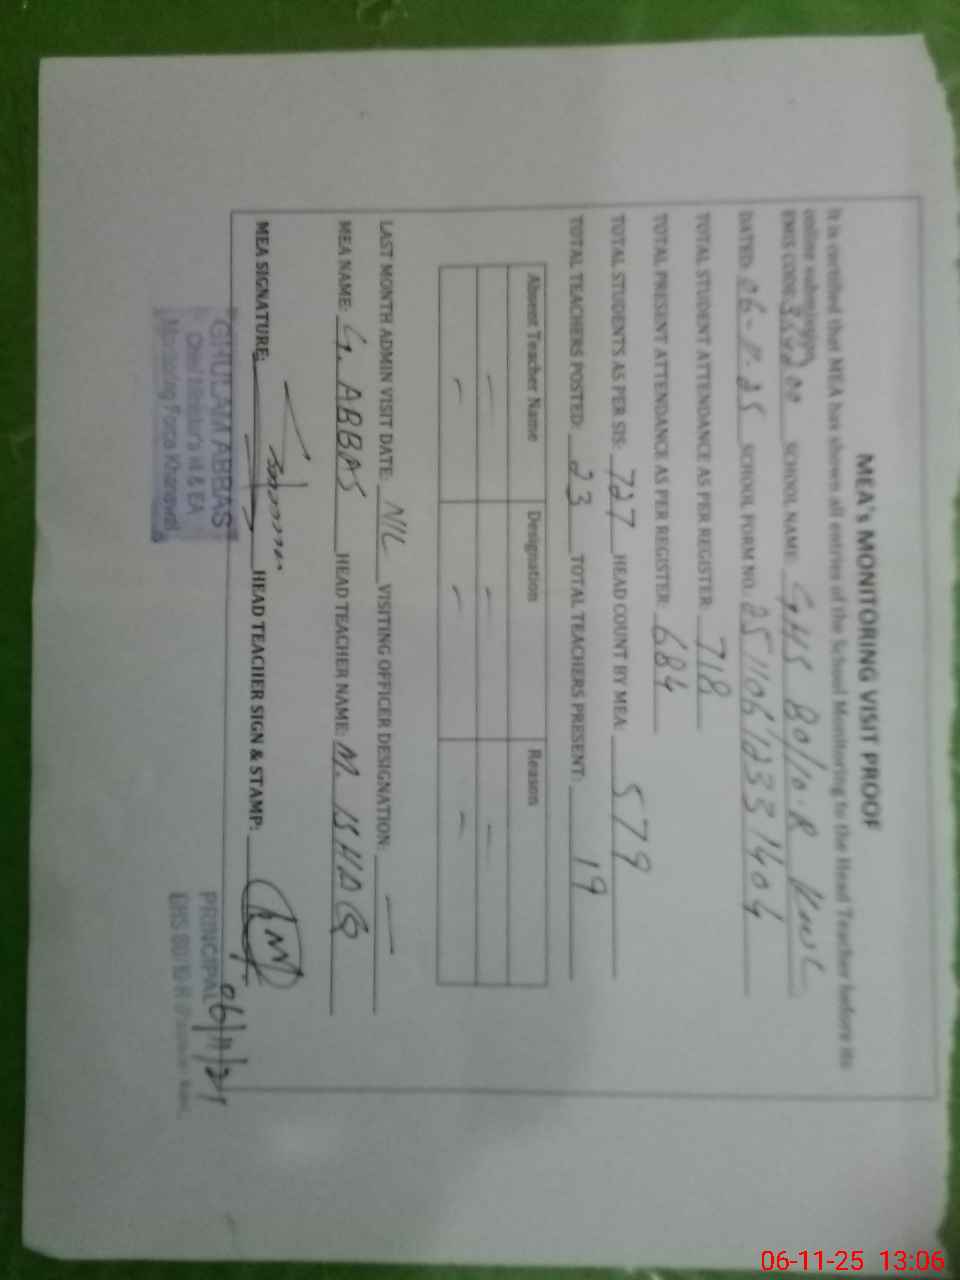 MEA's MONITORING VISIT PROOF
It is certified that MEA has shown all entries of the School Monitoring to the Head Teacher before its
online submission
EMIS CODE: SCHOOL NAME: GHS 80/10.R
DATED: 06-11-25 SCHOOL FORM NO. 25110612331404
TOTAL STUDENT ATTENDANCE AS PER REGISTER: 718
TOTAL PRESENT ATTENDANCE AS PER REGISTER: 684
TOTAL STUDENTS AS PER SIS: 727 HEAD COUNT BY MEA: 579
TOTAL TEACHERS POSTED: 23 TOTAL TEACHERS PRESENT: 19
Absent Teacher Name Designation Reason
— — —
— — —
LAST MONTH ADMIN VISIT DATE: NIL VISITING OFFICER DESIGNATION: —
MEA NAME: G. ABBAS HEAD TEACHER NAME: M. ISHAQ
MEA SIGNATURE: HEAD TEACHER SIGN & STAMP:
GHULAM ABBAS
Chief Minister's M & EA
Monitoring Force Khanewal
PRINCIPAL
06-11-25 13:06